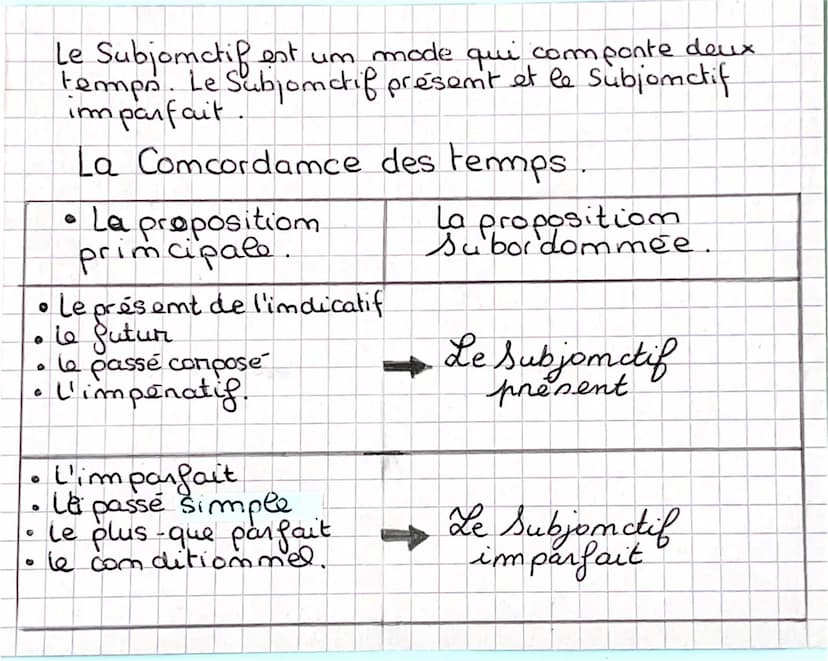 Le Subjonctif est un mode qui comporte deux
temps. Le Subjonctif présent et le Subjonctif
imparfait.
La Concordance des temps.
• La proposition
principale.
la proposition
subordonnée.
• Le présent de l'indicatif
• le futur
• le passé composé
• L'impératif.
→ Le Subjonctif
présent
• L'imparfait
• Le passé simple
• le plus-que parfait
• le conditionnel.
→ Le Subjonctif
imparfait